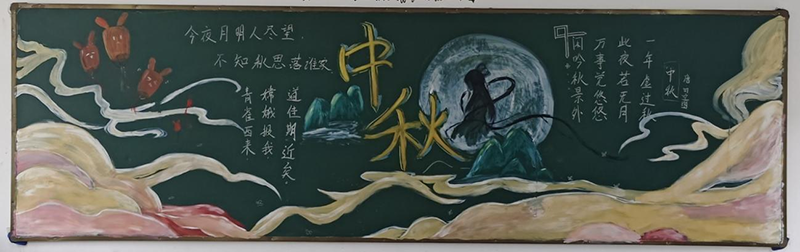 今夜月明人尽望，
不知秋思落谁家
青雀西来
嫦娥报我
道佳期近矣。
中秋
闲吟秋景外。
万事觉悠悠
此夜若无月
一年虚过秋
(中秋)
唐·司空图